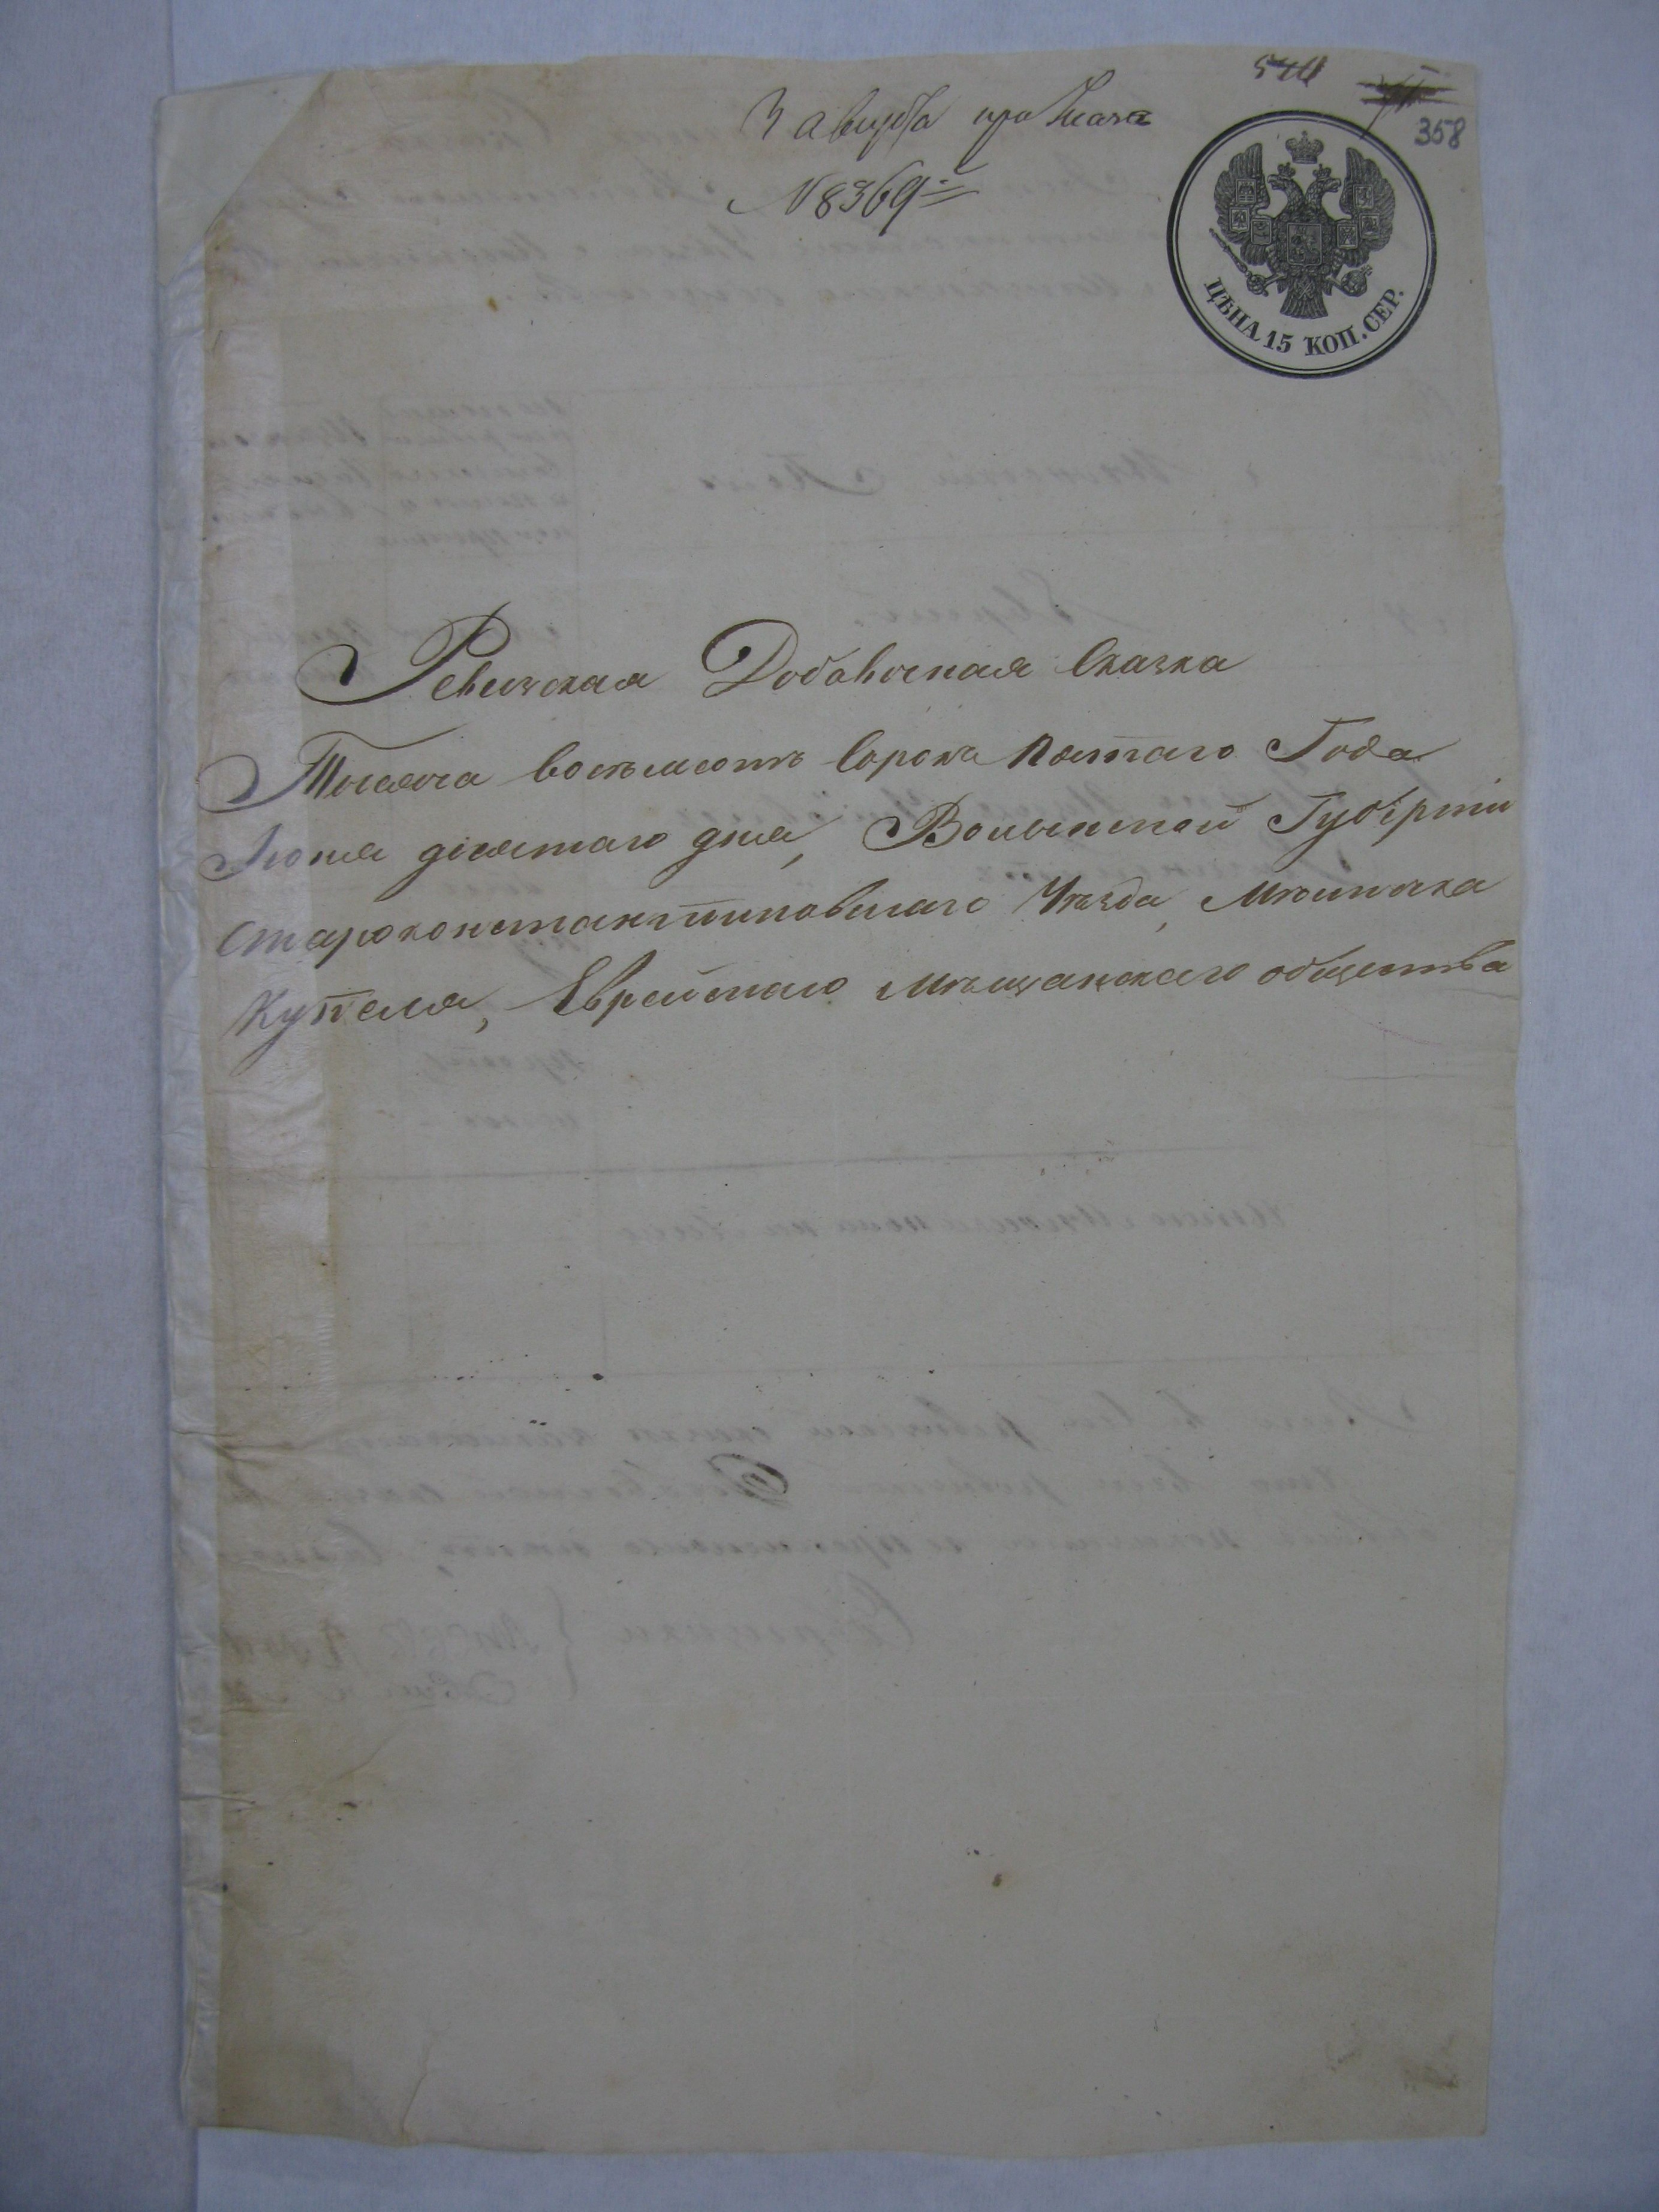 540
358
3 августа
№ 8369
ЦѢНА 15 КОП. СЕР.
Ревизская Добавочная Сказка
Тысяча восемьсотъ Сорокъ Пятаго Года
Іюня десятаго дня, Волынской Губерніи
Староконстантиновскаго Уѣзда, Мѣстечка
Купеля, Еврейскаго мѣщанскаго общества